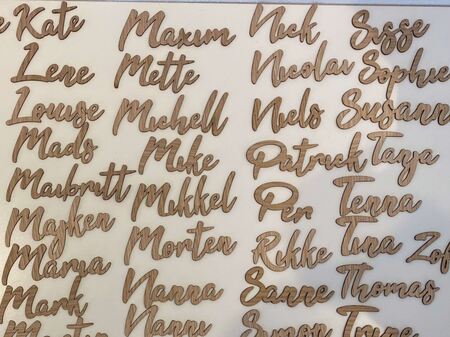 Kate
Lene
Louise
Mads
Maibritt
Majken
Maria
Mark
Maxim
Mette
Michell
Mike
Mikkel
Morten
Nanna
Nanni
Nick
Nicolai
Niels
Patrick
Per
Rikke
Sanne
Simon
Sisse
Sophie
Susann
Tanja
Tenna
Tina
Thomas
Trine
Zof